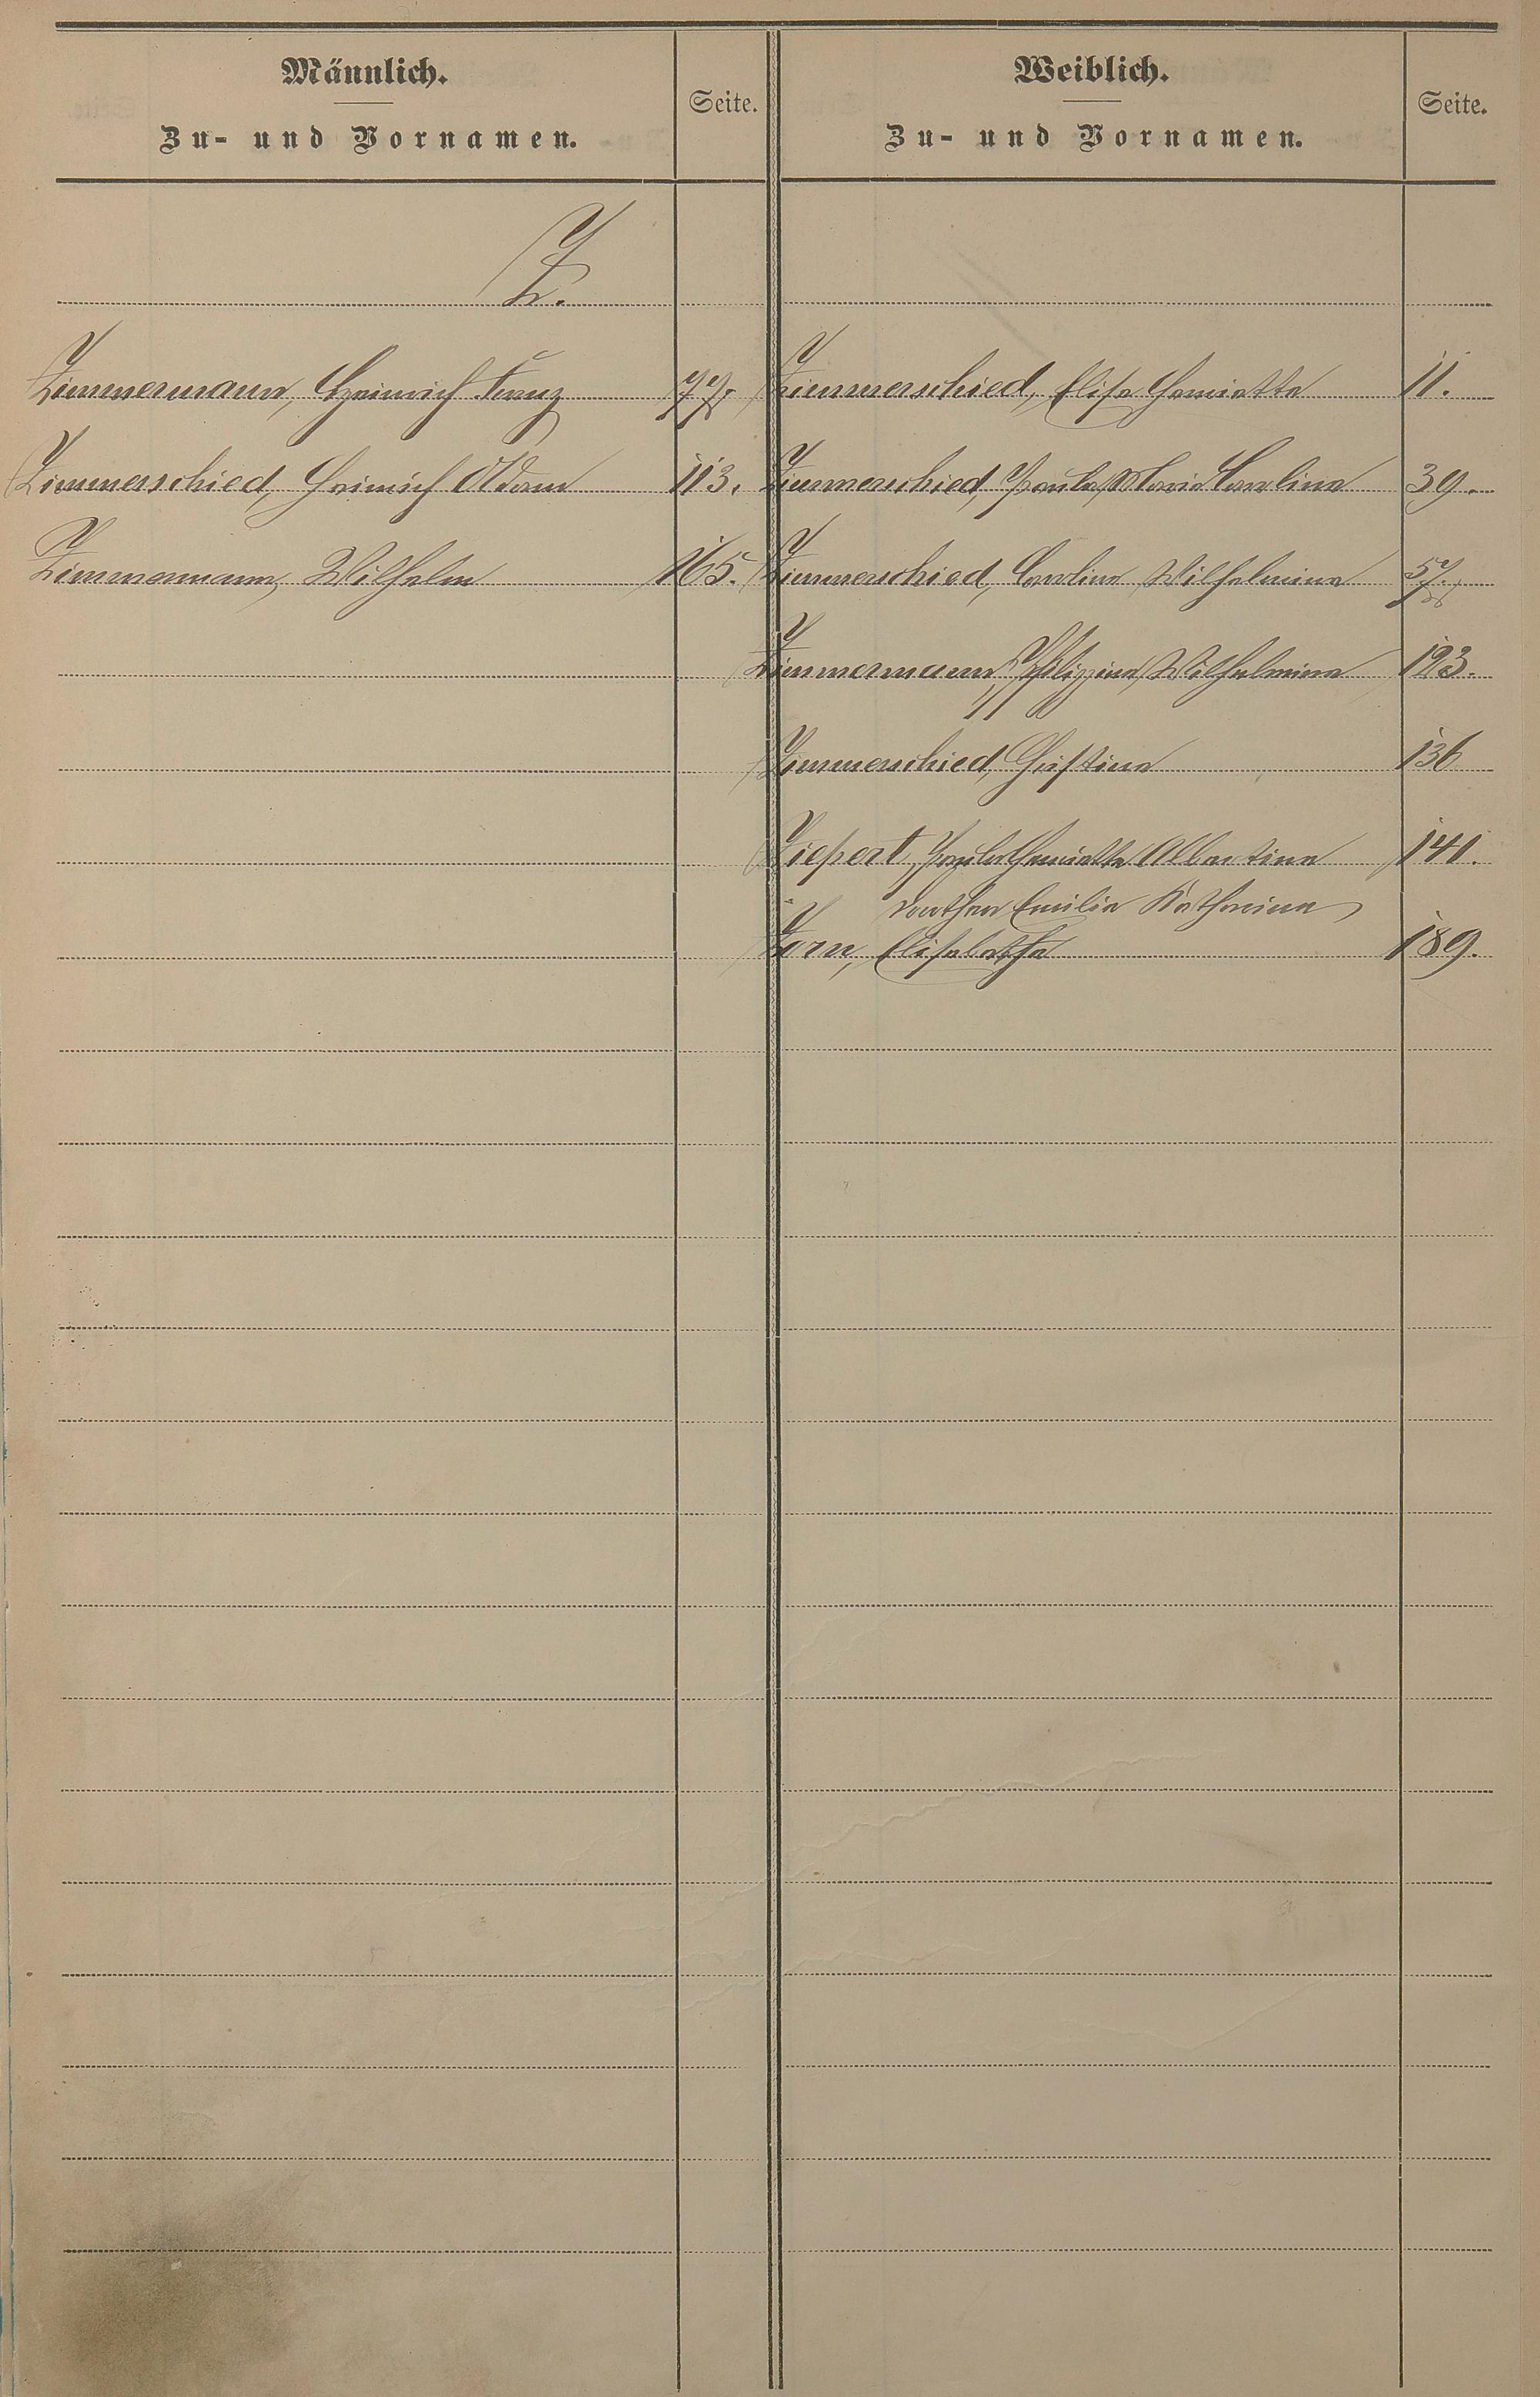 Männlich.
Zu- und Vornamen.
Seite.
Weiblich.
Zu- und Vornamen.
Seite.
Z.
Zimmermann, Heinrich Franz 77.
Zimmerschied, Heinrich Adam 113.
Zimmermann, Wilhelm 165.
Zimmerschied, Elise Henriette 11.
Zimmerschied, Paula Marie Caroline 39.
Zimmerschied, Caroline Wilhelmine 57.
Zimmermann, Philippine Wilhelmine 123.
Zimmerschied, Christine 136
Ziepert, Paula Henriette Albertine 141.
Dorothea Emilie Katharina
Zorn, Elisabetha 189.